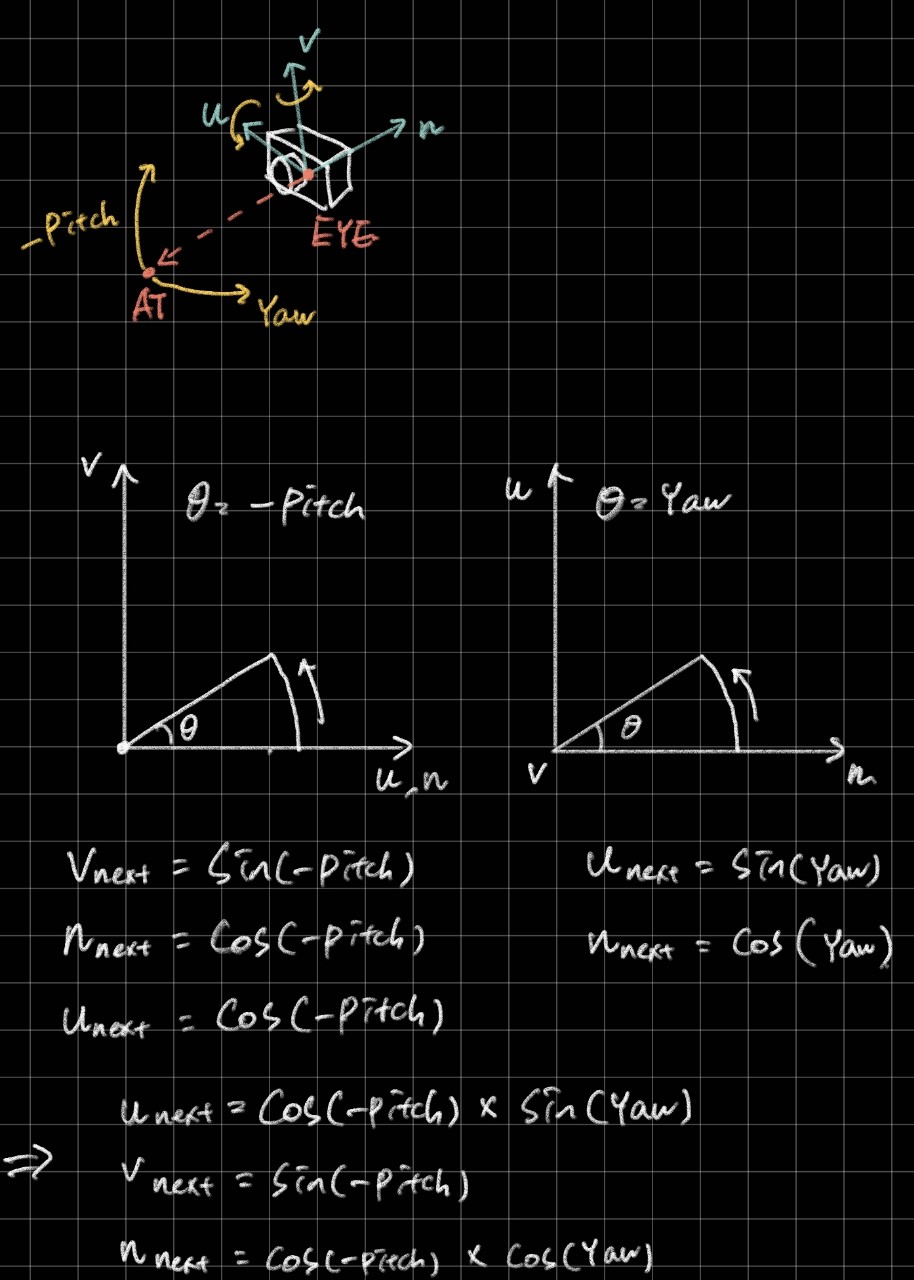 v
u
n
EYE
-Pitch
AT
Yaw
v
θ = -Pitch
θ
u, n
u
θ = Yaw
θ
v
n
Vnext = Sin(-pitch)
nnext = Cos(-pitch)
unext = Cos(-pitch)
unext = Sin(Yaw)
nnext = Cos(Yaw)
⇒
unext = Cos(-pitch) × Sin(Yaw)
Vnext = Sin(-pitch)
nnext = Cos(-pitch) × Cos(Yaw)